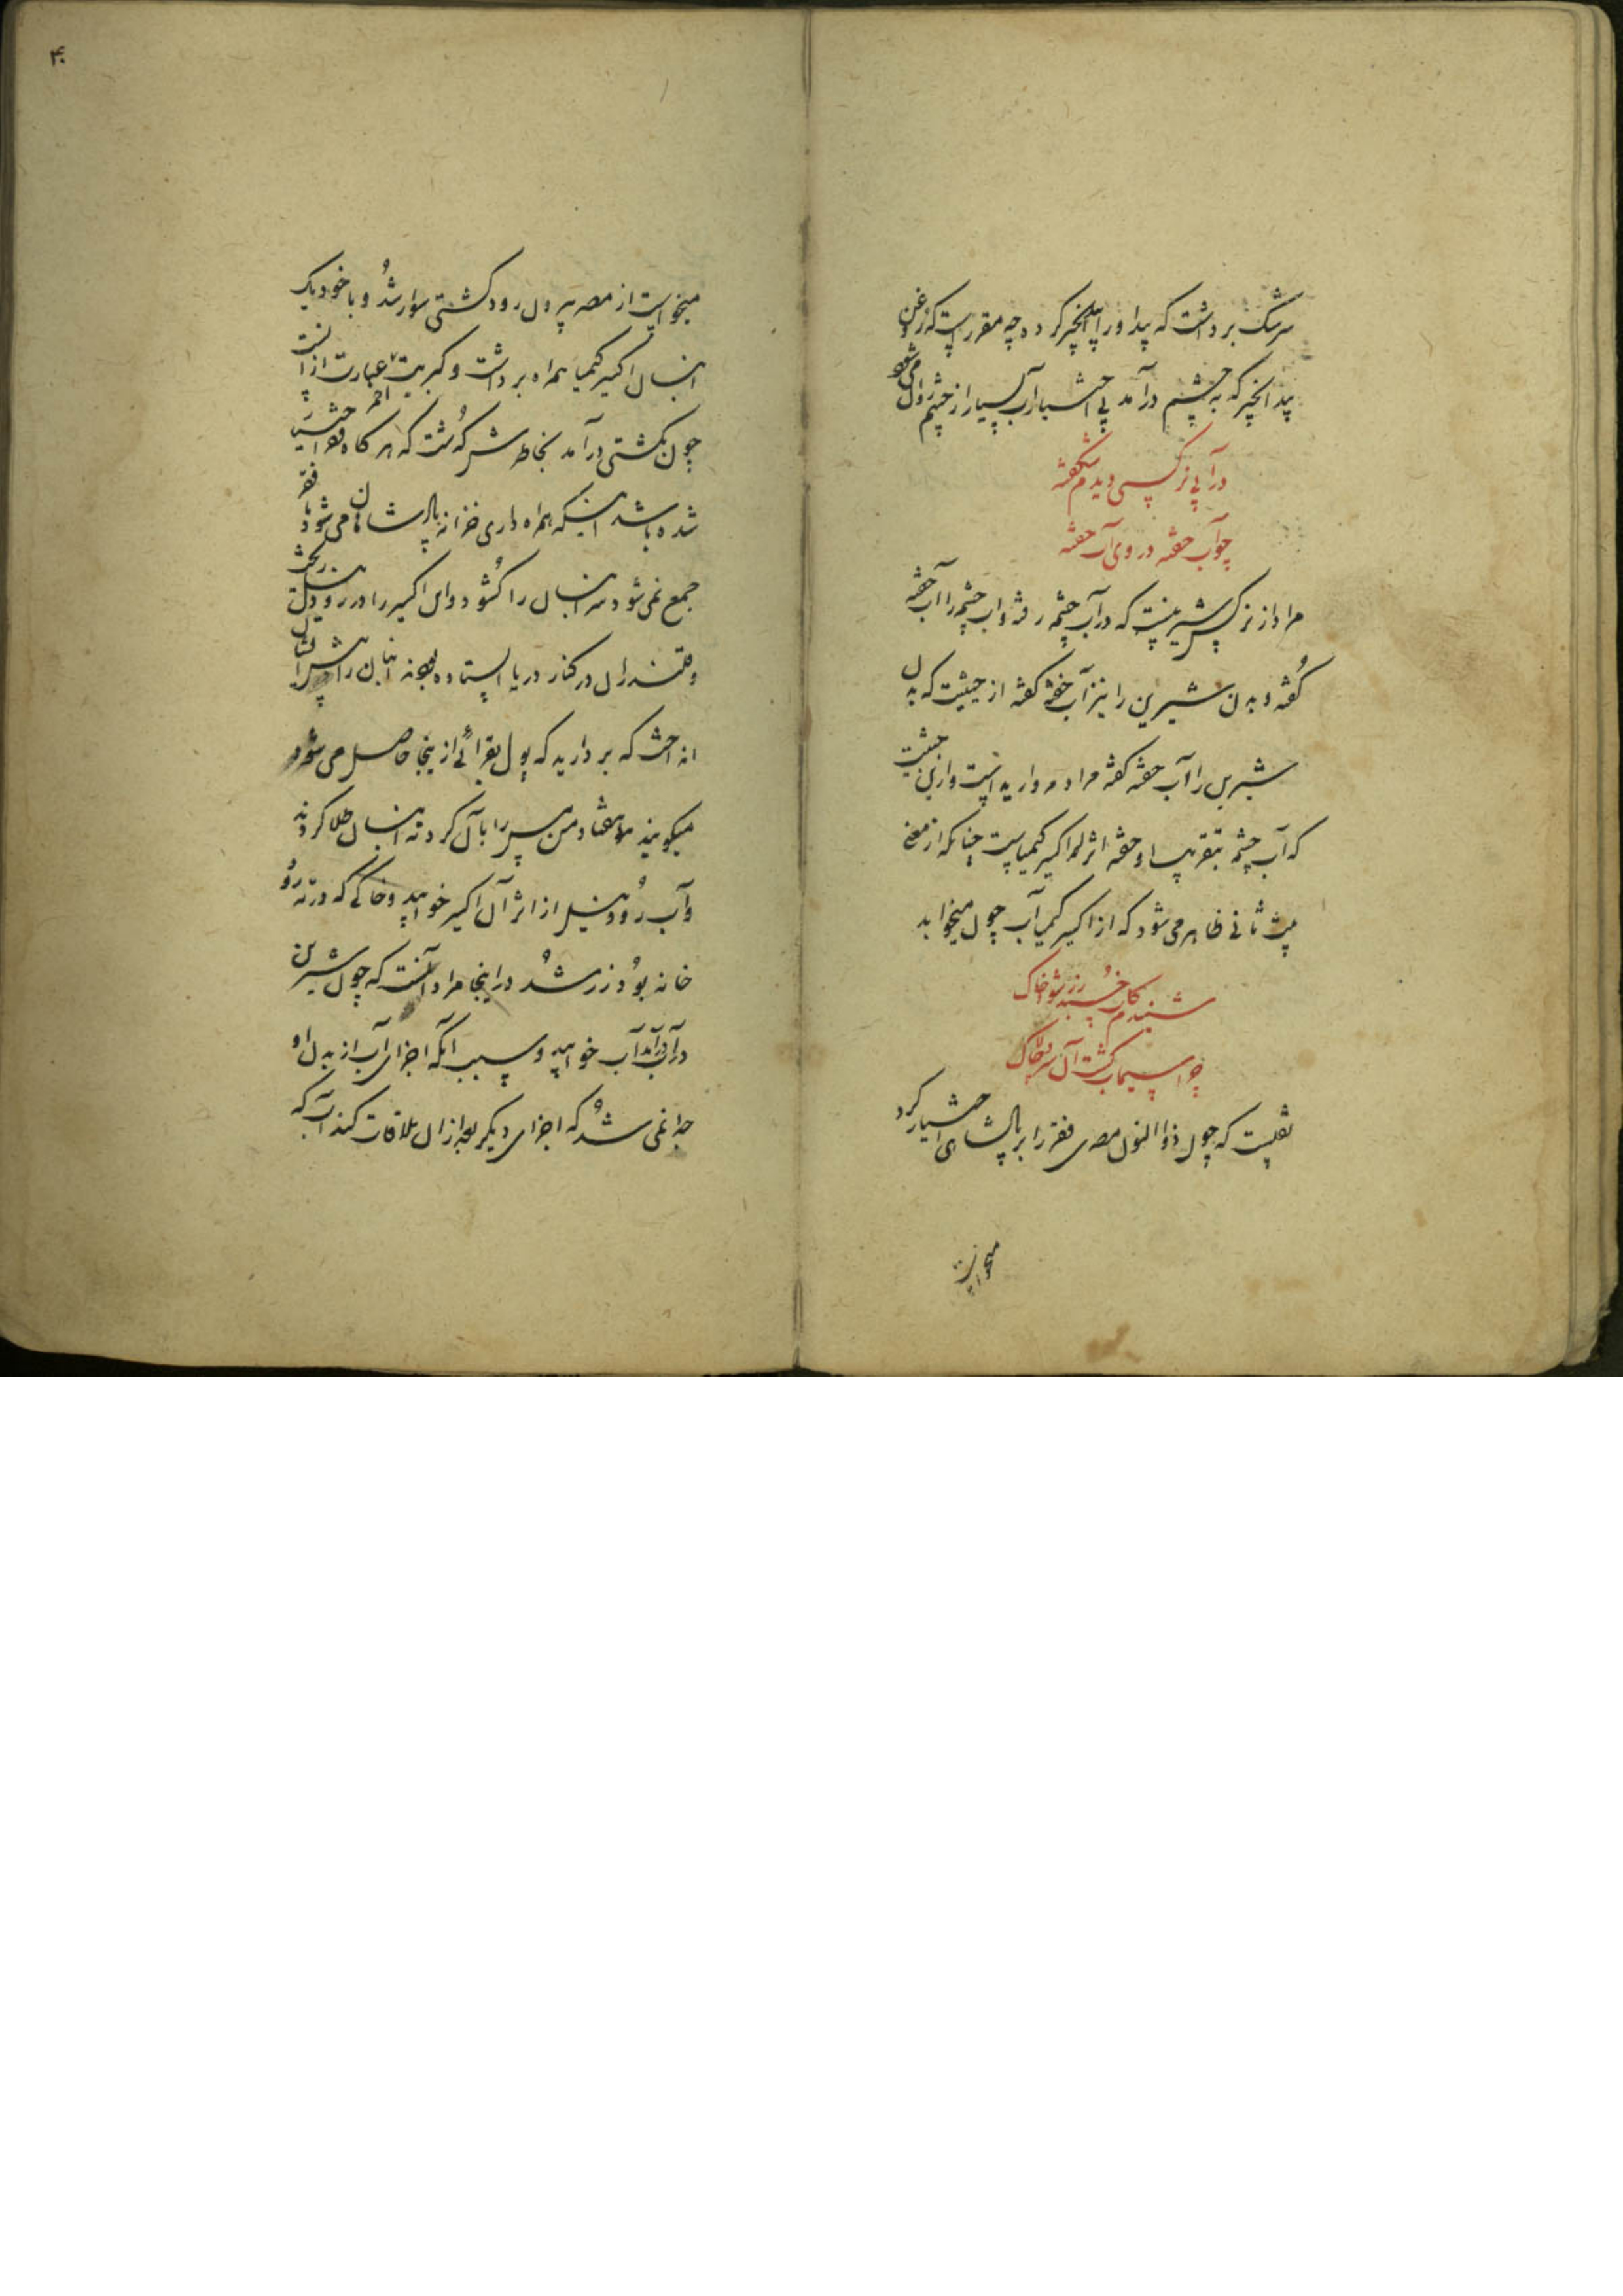 سرشک برداشت که بید او را بید انجیر کرده چه مقررست که روغن
بید انجیر که به چشم درآمد بی اختیار آب بسیار از چشم روان می شود
در آبی نرگسی دیدم شکفته
چو آب خفته در وی آب خفته
مراد از نرگس شیرینست که در آب چشمه رفته و آب چشمه را آب خفته
گفته و بدن شیرین را نیز آب خفته گفته از حیثیت که بدن
شیرین را آب خفته گفته مراد مرواریدست و ازین حیثیت
که آب چشمه بتقریب او خفته اثر اکسیر کیمیاست چنانکه از معنی
بیت ثانی ظاهر می شود که از اکسیر کیمیا آب چون میخوابد
شنیدم کاب خسبد زر شود خاک
چرا سیماب گشت آن سرو چالاک
نقلیست که چون ذوالنون مصری فقر را بر پادشاهی اختیار کرد
میخواست
۴۰
میخواست از مصر بیرون رود کشتی سوار شد و با خود یک
انبان اکسیر کیمیا همراه برداشت و کبریت احمر عبارت از آنست
چون بکشتی درآمد بخاطرش گذشت که هرگاه فقر اختیار
شده باشد اینکه همراه داری خزانه پادشاهان می شود با فقر
جمع نمی شود سر انبان را گشود و آن اکسیر را در رود نیل ریخت
و قلندران در کنار دریا ایستاده بودند انبان را پیش ایشان
انداخت که بردارید که پول بقرائی ازینجا حاصل می شود
میگویند هفتاد من مس را بآن گرد ته انبان طلا کردند
و آب رود نیل از اثر آن اکسیر خوابید و خاکی که در ته رود
خانه بود زر شد در اینجا مراد آنست که چون شیرین
در آب درآمد آب خوابید و سبب آنکه اجزای آب از بدن او
جدا نمی شد که اجزای دیگر بعد از آن ملاقات کند آب که